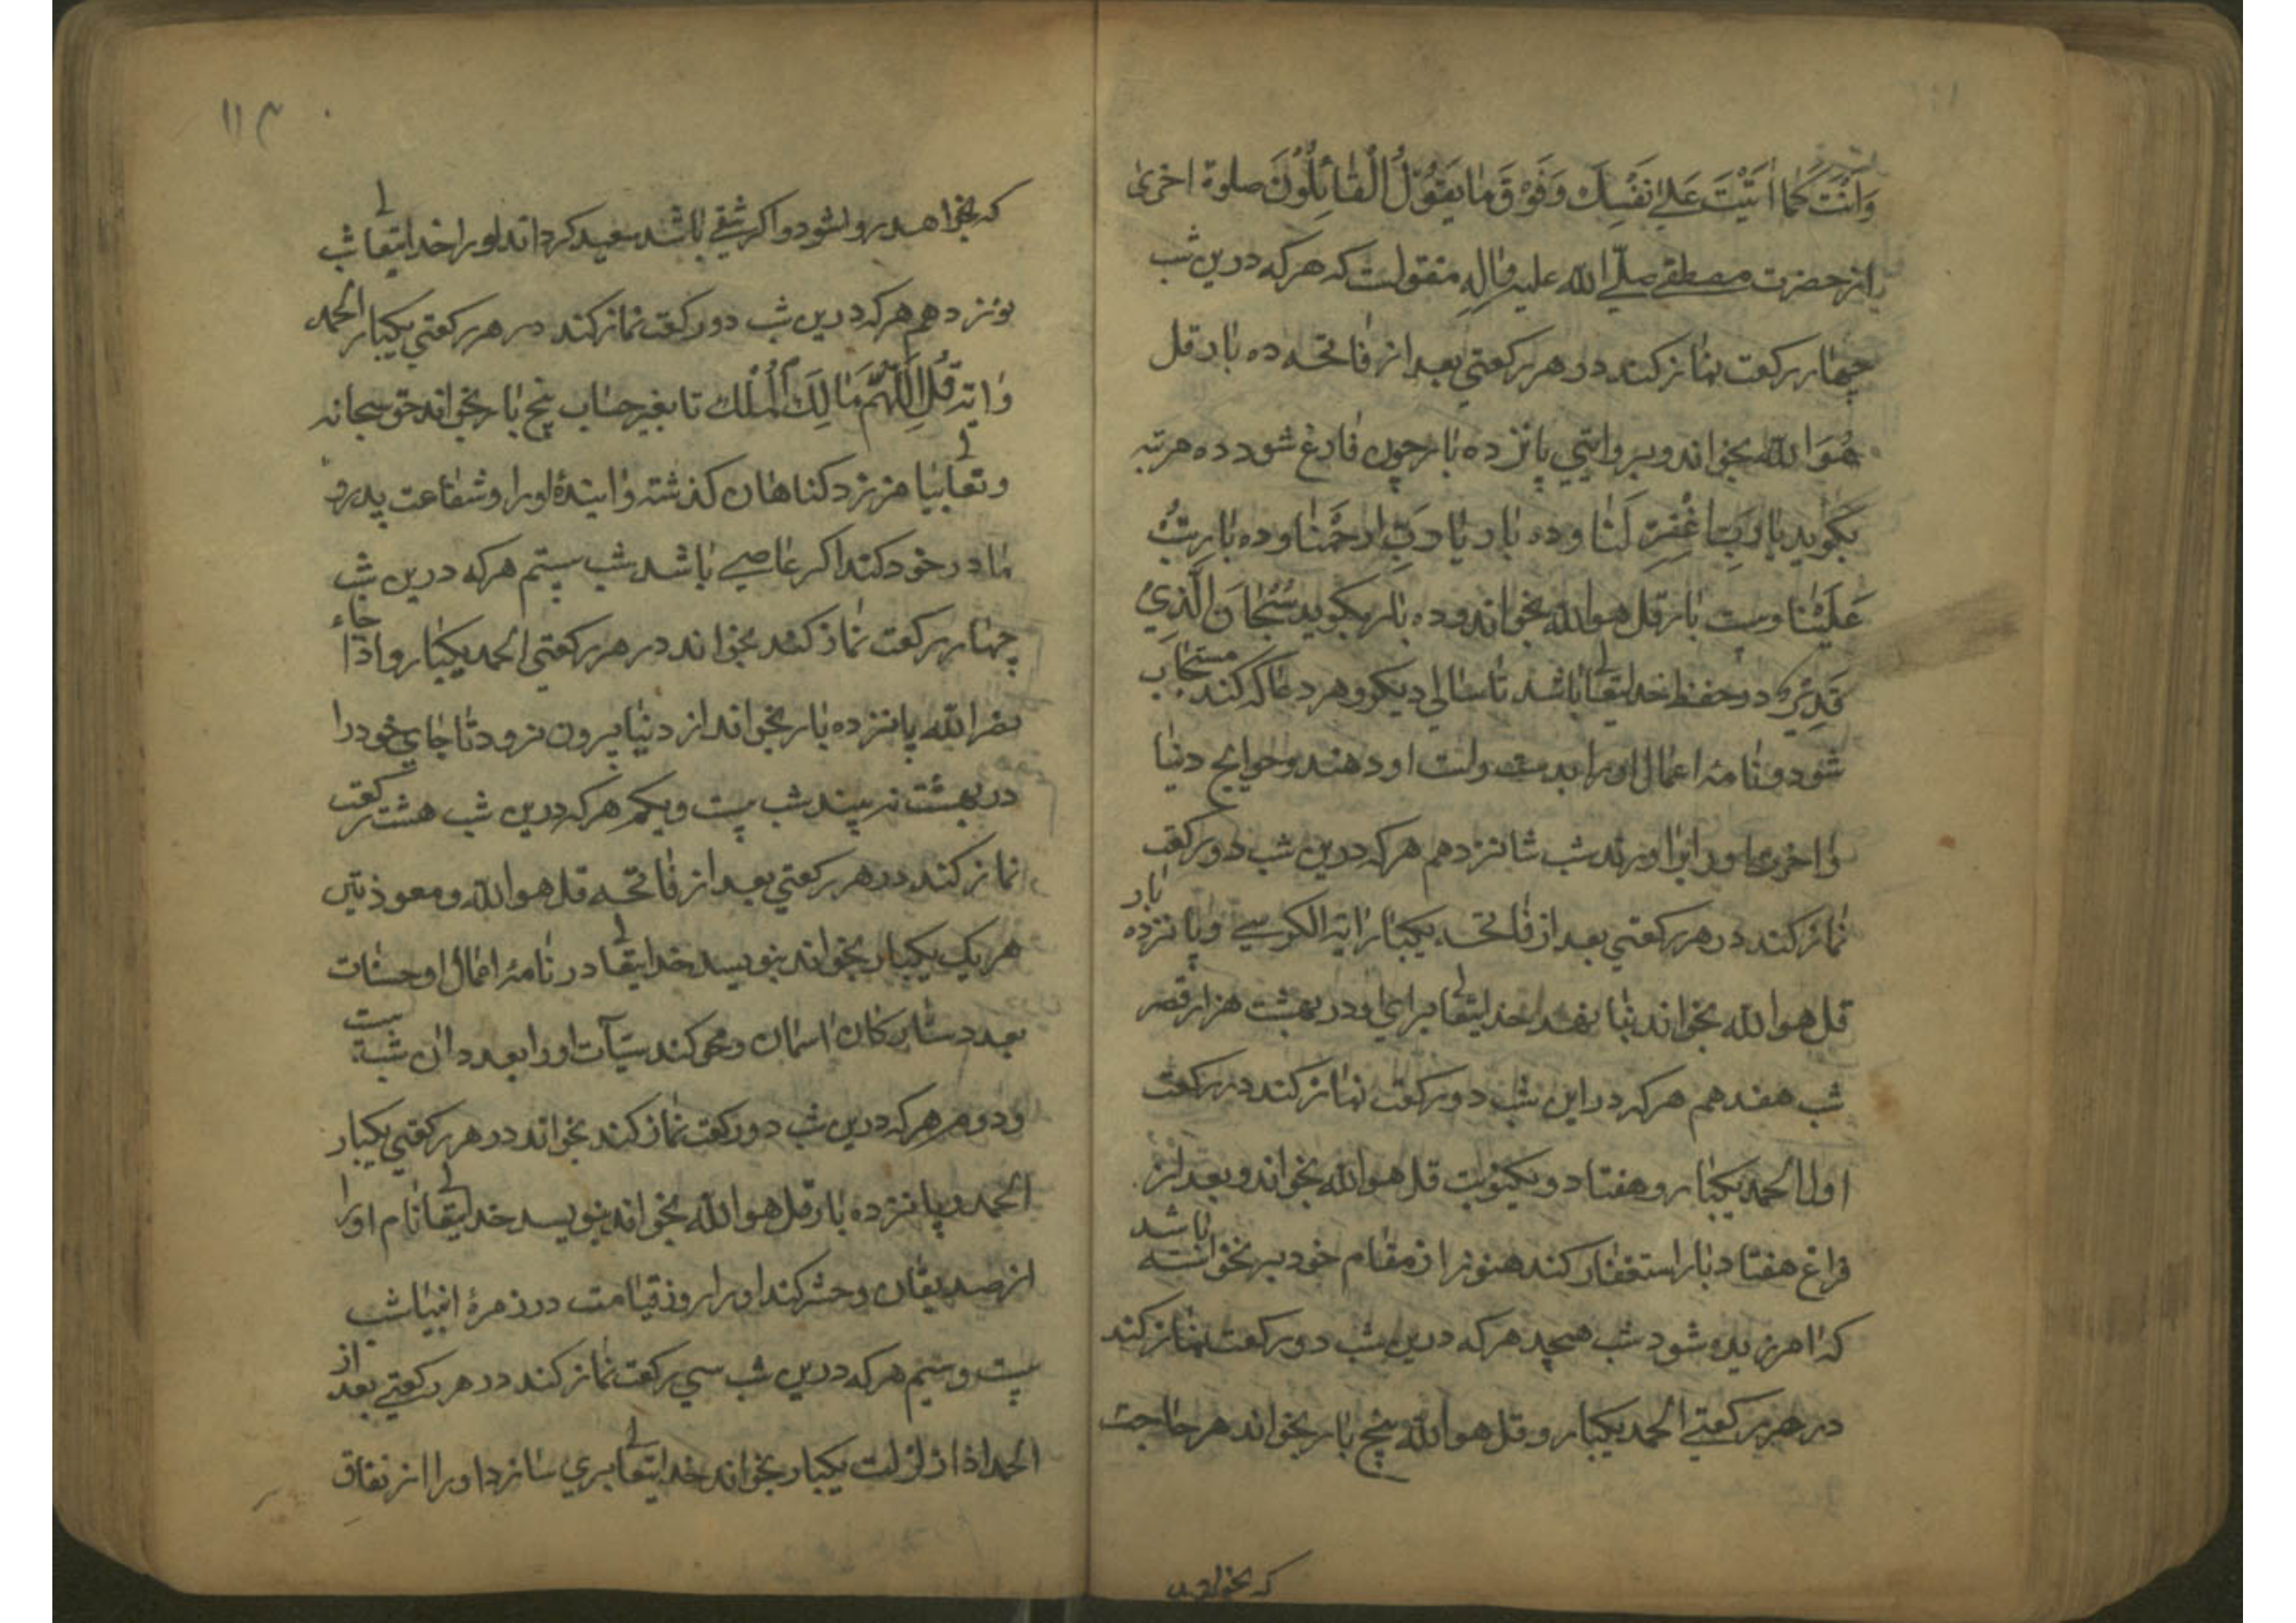 وَاَنْتَ كَمٰا اَثْنَيْتَ عَلىٰ نَفْسِكَ وَفَوْقَ مٰا يَقُوْلُ الْقٰائِلُوْنَ صلوة اخرى
از حضرت مصطفى صلّى الله عليه واٰلِهِ منقولست كه هركه درين شب
چهار ركعت نماز كند در هر ركعتي بعد از فاتحه ده بار قل
هُوَ الله بخواند وبروايتي پانزده بار چون فارغ شود ده مرتبه
بگويد يا رَبِّ اغْفِرْ لَنٰا وده بار يٰا رَبِّ ارحَمْنٰا وده بار تُبْ
عَلَيْنٰا وبيست بار قل هوالله بخواند وده بار بگويد سُبْحٰانَ الَّذِي
قَدِيْرٌ در حفظ خدايتعالى باشد تا سال ديكر وهر دعا كه كند مستجاب
شود ونامهٔ اعمال او را بدست راست او دهند وحوايج دنيا
واخرى او را برآورند شب شانزدهم هركه درين شب دو ركعت
نماز كند در هر ركعتي بعد از فاتحه يكبار اية الكرسي وپانزده بار
قل هوالله بخواند بنا نهد خدايتعالى براي او در بهشت هزار قصر
شب هفدهم هركه دراين شب دو ركعت نماز كند در ركعت
اول الحمد يكبار وهفتاد ويكنوبت قل هوالله بخواند وبعد از
فراغ هفتاد بار استغفار كند هنوز از مقام خود برنخواسته باشد
كه امرزيده شود شب هيجدهم هركه درين شب دو ركعت نماز كند
در هر ركعتي الحمد يكبار وقل هوالله پنج بار بخواند هر حاجت
كه بخواهد
١١٣
كه بخواهد روا شود واكر شقي باشد سعيد كرداند او را خدايتعالى شب
نوزدهم هركه درين شب دو ركعت نماز كند در هر ركعتي يكبار الحمد
واية قُلِ اللّٰهُمَّ مٰالِكَ الْمُلْكِ تا بغير حساب پنج بار بخواند حق سبحانه
وتعالى بيامرزد كناهان كذشته وايندهٔ او را وشفاعت پدر و
مادر خود كند اكر عاصي باشد شب بيستم هركه درين شب
چهار ركعت نماز كند بخواند در هر ركعتي الحمد يكبار واذا جاء
نصر الله پانزده بار بخواند از دنيا بيرون نرود تا جاي خود را
در بهشت نبيند شب بيست ويكم هركه درين شب هشت ركعت
نماز كند در هر ركعتي بعد از فاتحه قل هوالله ومعوذتين
هر يك يكبار بخواند بنويسد خدايتعالى در نامهٔ اعمال او حسنات
بعدد ستاركان اسمان ومحو كند سيّآت او را بعدد ان شب بيست
ودوم هركه درين شب دو ركعت نماز كند بخواند در هر ركعتي يكبار
الحمد وپانزده بار قل هوالله بخواند بنويسد خدايتعالى نام او را
از صديقان وحشر كند او را روز قيامت در زمرهٔ انبيا شب
بيست وسيم هركه درين شب سي ركعت نماز كند در هر ركعتي بعد از
الحمد اذا زلزلت يكبار بخواند خدايتعالى بري سازد او را از نفاق